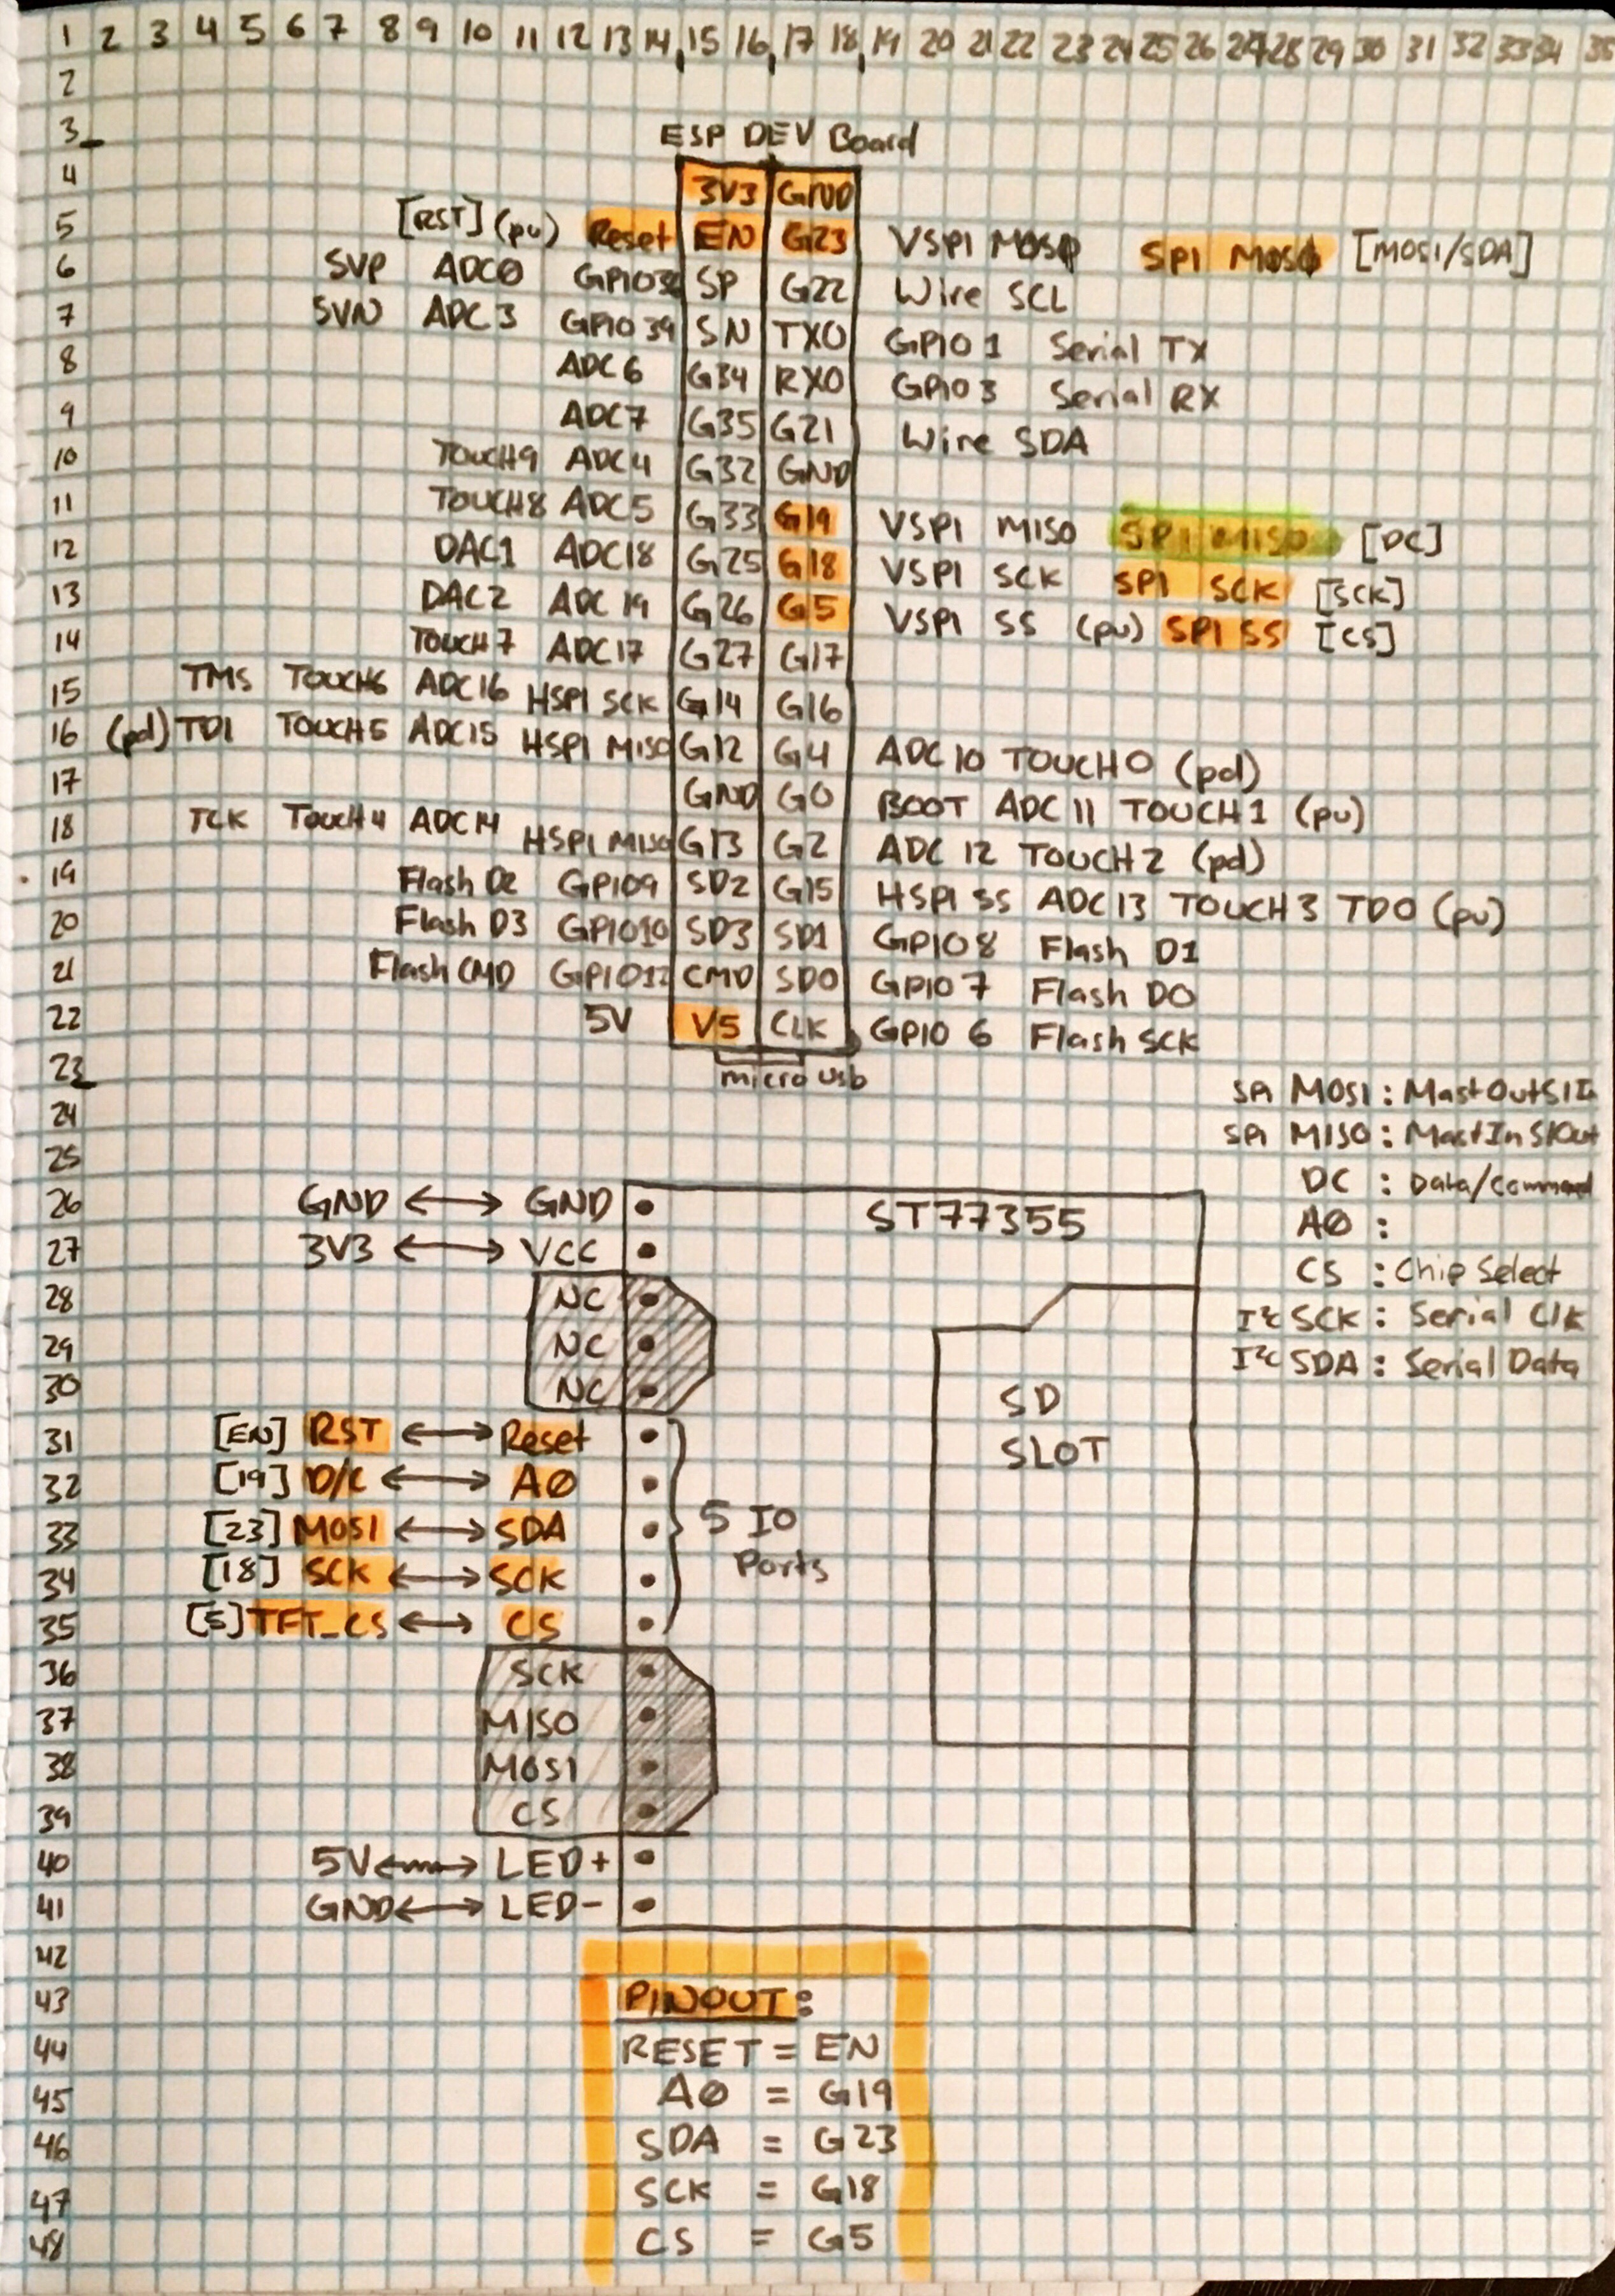 1 2 3 4 5 6 7 8 9 10 11 12 13 14 15 16 17 18 19 20 21 22 23 24 25 26 27 28 29 30 31 32 33 34 35
2
3 ESP DEV Board
4 3V3 GND
5 [RST] (pu) Reset EN G23 VSPI MOSI SPI MOSI [MOSI/SDA]
6 SVP ADC0 GPIO36 SP G22 Wire SCL
7 SVN ADC3 GPIO39 SN TX0 GPIO1 Serial TX
8 ADC6 G34 RX0 GPIO3 Serial RX
9 ADC7 G35 G21 Wire SDA
10 TOUCH9 ADC4 G32 GND
11 TOUCH8 ADC5 G33 G19 VSPI MISO SPI MISO [DC]
12 DAC1 ADC18 G25 G18 VSPI SCK SPI SCK [SCK]
13 DAC2 ADC19 G26 G5 VSPI SS (pu) SPI SS [CS]
14 TOUCH7 ADC17 G27 G17
15 TMS TOUCH6 ADC16 HSPI SCK G14 G16
16 (pd) TDI TOUCH5 ADC15 HSPI MISO G12 G4 ADC10 TOUCH0 (pd)
17 GND G0 BOOT ADC11 TOUCH1 (pu)
18 TCK TOUCH4 ADC14 HSPI MISO G13 G2 ADC12 TOUCH2 (pd)
19 Flash D2 GPIO9 SD2 G15 HSPI SS ADC13 TOUCH3 TDO (pu)
20 Flash D3 GPIO10 SD3 SD1 GPIO8 Flash D1
21 Flash CMD GPIO11 CMD SD0 GPIO7 Flash D0
22 5V V5 CLK GPIO6 Flash SCK
23 micro usb
SPI MOSI : MastOutSlIn
24 SPI MISO : MastInSlOut
25 DC : Data/Command
26 GND ↔ GND ST77355 AØ :
27 3V3 ↔ VCC CS : Chip Select
28 NC I²C SCK : Serial Clk
29 NC I²C SDA : Serial Data
30 NC SD
31 [EN] RST ↔ Reset SLOT
32 [19] D/C ↔ AØ
33 [23] MOSI ↔ SDA 5 IO
34 [18] SCK ↔ SCK Ports
35 [5] TFT_CS ↔ CS
36 SCK
37 MISO
38 MOSI
39 CS
40 5V ↔ LED+
41 GND ↔ LED-
42
43 PINOUT:
44 RESET = EN
45 AØ = G19
46 SDA = G23
47 SCK = G18
48 CS = G5